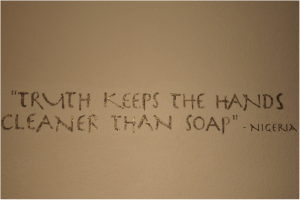 "TRUTH KEEPS THE HANDS
CLEANER THAN SOAP" - NIGERIA